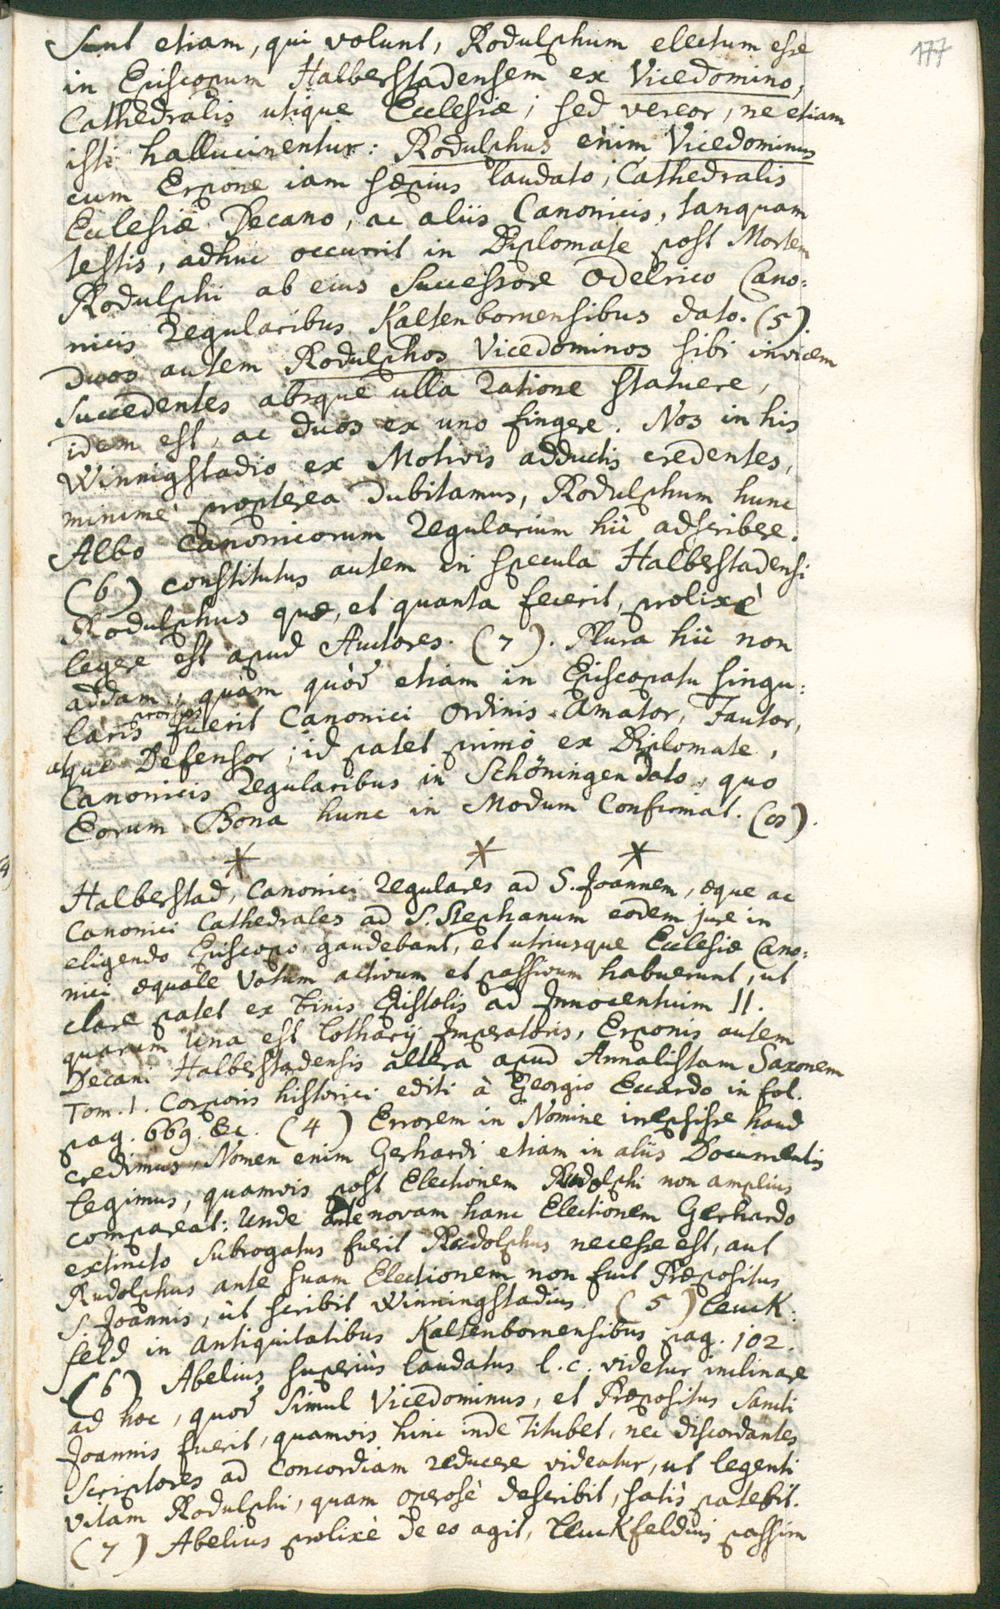 177
Sunt etiam, qui volunt, Rodulphum electum esse
in Episcopum Halberstadensem ex Vicedomino,
Cathedralis utique Ecclesiæ; sed vereor, ne etiam
isti hallucinentur: Rodulphus enim Vicedominus
cum Erpone iam sæpius laudato, Cathedralis
Ecclesiæ Decano, ac aliis Canonicis, tanquam
testis, adhuc occurrit in Diplomate post Mortem
Rodulphi ab eius Successore Odelrico Cano:
nicis Regularibus Kaltenbornensibus dato. (5)
Duos autem Rodulphos Vicedominos sibi invicem
succedentes absque ulla Ratione statuere,
idem est, ac duos ex uno fingere. Nos in his
Winnigstadio ex Motivis adductis credentes,
minimè propterea dubitamus, Rodulphum hunc
Albo Canonicorum Regularium hic adscribere.
(6) constitutus autem in specula Halberstadensi
Rodulphus quæ, et quanta fecerit, prolixè
legere est apud Auctores. (7). Plura hic non
addam, quàm quòd etiam in Episcopatu singu:
laris prorsus fuerit Canonici Ordinis Amator, Fautor,
atque Defensor; id patet primò ex Diplomate,
Canonicis Regularibus in Schöningen dato, quo
Eorum Bona hunc in Modum Confirmat. (8).
* * *
Halberstad, Canonici Regulares ad S. Joannem, æque ac
Canonici Cathedrales ad S. Stephanum eodem jure in
eligendo Episcopo gaudebant, et utriusque Ecclesiæ Cano:
nici æquale Votum activum et passivum habuerunt, ut
clare patet ex binis Epistolis ad Innocentium II.
quarum Una est Lotharij Imperatoris, Erponis autem
Decani Halberstadensis altera apud Annalistam Saxonem
Tom. 1. Corporis historici editi à Georgio Eccardo in fol.
pag. 669. &c. (4) Errorem in Nomine irrepsisse haud
credimus, Nomen enim Gerhardi etiam in aliis Documentis
legimus, quamvis post Electionem Rudolphi non amplius
compareat: Unde ante novam hanc Electionem Gerhardo
extincto Subrogatus fuerit Rudolphus necesse est, aut
Rudolphus ante suam Electionem non fuit Præpositus
S. Joannis, ut scribit Winningstadius. (5) Leuck:
feld in Antiquitatibus Kaltenbornensibus pag. 102.
(6) Abelius superiùs laudatus l. c. videtur inclinare
ad hoc, quòd simul Vicedominus, et Præpositus Sancti
Joannis fuerit, quamvis hinc inde Titubet, nec discordantes
Scriptores ad Concordiam reducere videatur, ut legenti
vitam Rodulphi, quam operosè describit, satis patebit.
(7) Abelius prolixè de eo agit, Leuckfeldius passim